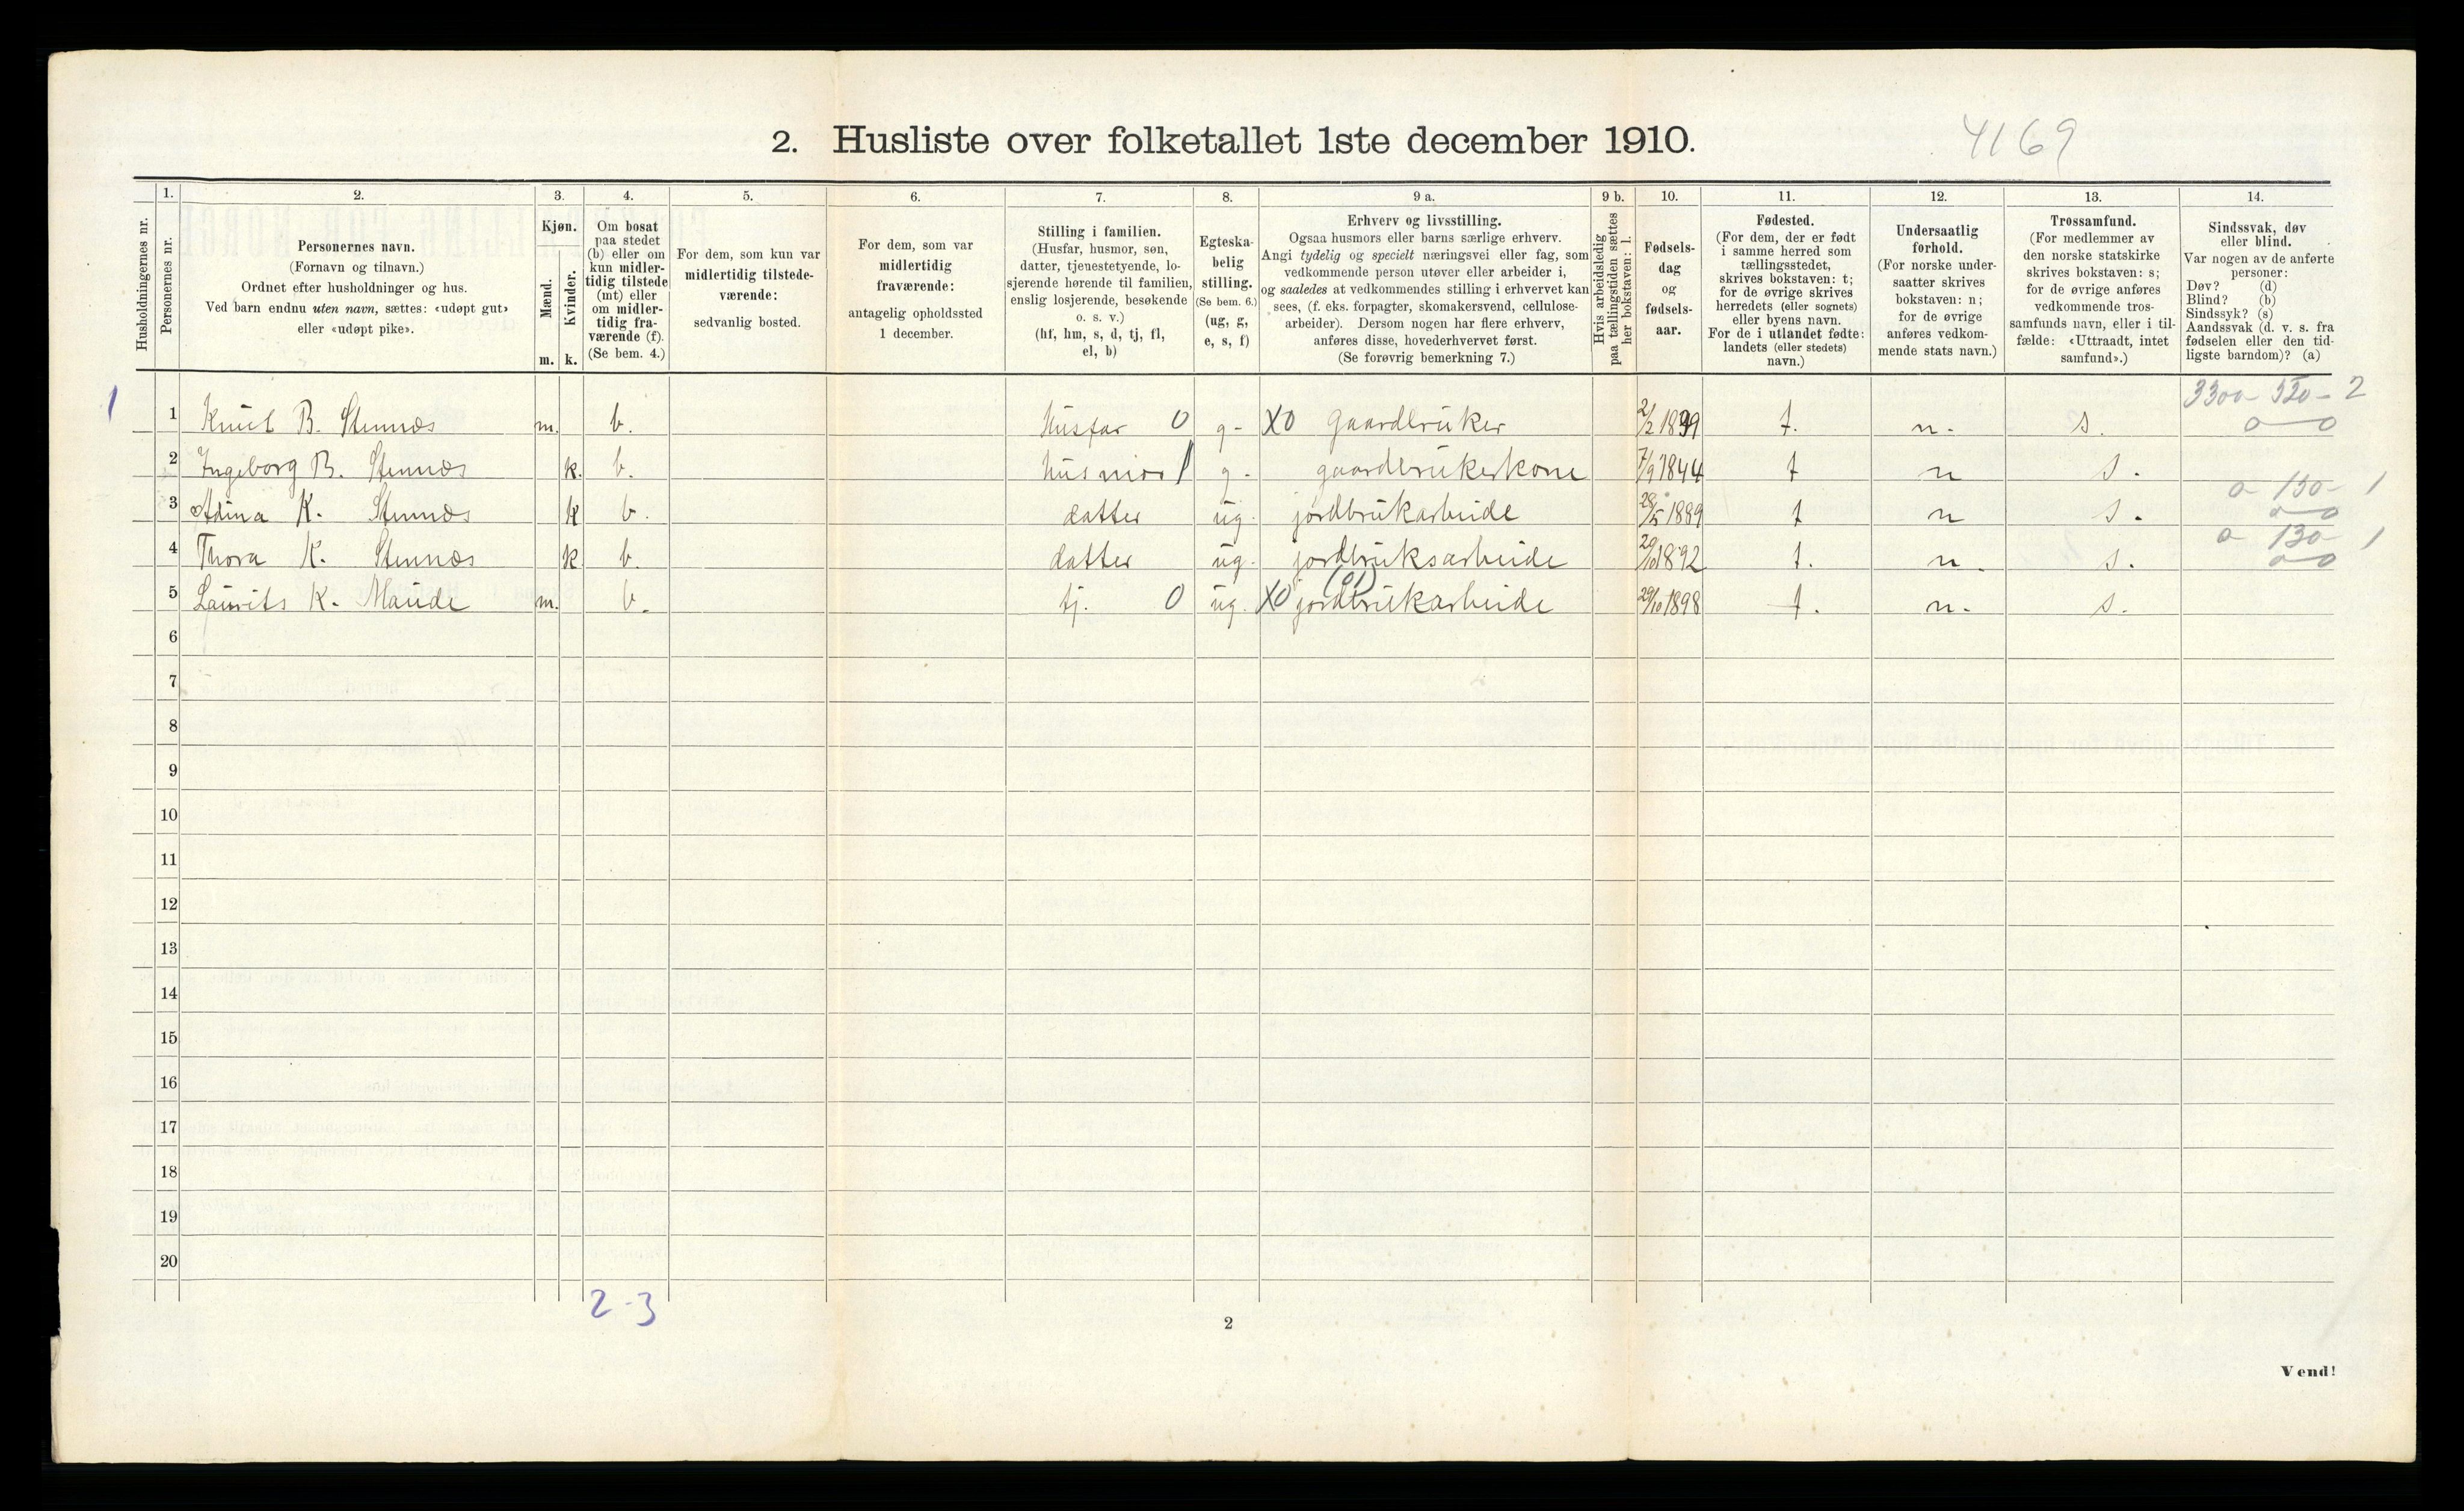 2. Husliste over folketallet 1ste december 1910.
4169
Husholdningernes nr.
1.
Personernes nr.
2.
Personernes navn.
(Fornavn og tilnavn.)
Ordnet efter husholdninger og hus.
Ved barn endnu uten navn, sættes: «udøpt gut»
eller «udøpt pike».
3.
Kjøn.
Mænd.
Kvinder.
m. k.
4.
Om bosat
paa stedet
(b) eller om
kun midler-
tidig tilstede
(mt) eller
om midler-
tidig fra-
værende (f).
(Se bem. 4.)
5.
For dem, som kun var
midlertidig tilstede-
værende:
sedvanlig bosted.
6.
For dem, som var
midlertidig
fraværende:
antagelig opholdssted
1 december.
7.
Stilling i familien.
(Husfar, husmor, søn,
datter, tjenestetyende, lo-
sjerende hørende til familien,
enslig losjerende, besøkende
o. s. v.)
(hf, hm, s, d, tj, fl,
el, b)
8.
Egteska-
belig
stilling.
(Se bem. 6.)
(ug, g,
e, s, f)
9 a.
Erhverv og livsstilling.
Ogsaa husmors eller barns særlige erhverv.
Angi tydelig og specielt næringsvei eller fag, som
vedkommende person utøver eller arbeider i,
og saaledes at vedkommendes stilling i erhvervet kan
sees, (f. eks. forpagter, skomakersvend, cellulose-
arbeider). Dersom nogen har flere erhverv,
anføres disse, hovederhvervet først.
(Se forøvrig bemerkning 7.)
9 b.
Hvis arbeidsledig
paa tællingstiden sættes
her bokstaven: l.
10.
Fødsels-
dag
og
fødsels-
aar.
11.
Fødested.
(For dem, der er født
i samme herred som
tællingsstedet,
skrives bokstaven: t;
for de øvrige skrives
herredets (eller sognets)
eller byens navn.
For de i utlandet fødte:
landets (eller stedets)
navn.)
12.
Undersaatlig
forhold.
(For norske under-
saatter skrives
bokstaven: n;
for de øvrige
anføres vedkom-
mende stats navn.)
13.
Trossamfund.
(For medlemmer av
den norske statskirke
skrives bokstaven: s;
for de øvrige anføres
vedkommende tros-
samfunds navn, eller i til-
fælde: «Uttraadt, intet
samfund».)
14.
Sindssvak, døv
eller blind.
Var nogen av de anførte
personer:
Døv? (d)
Blind? (b)
Sindssyk? (s)
Aandssvak (d. v. s. fra
fødselen eller den tid-
ligste barndom)? (a)
3300- 520- 2
1 1 Knut B. Stennæs m. b. Husfar 0 g- X0 Gaardbruker 2/2 1839 t. n. s. 0 0
2 Ingeborg B. Stennæs k. b. Husmor 1 g. gaardbrukerkone 7/9 1844 t n s.
0- 130- 1
3 Adina K. Stennæs k b. datter ug. jordbrukarbeide 28/5 1889 t n s. 0 0
0- 130- 1
4 Thora K. Stennæs k b. datter ug. jordbruksarbeide 20/10 1892 t. n. s. 0 0
(01)
5 Laurits K. Maude m. b. tj. 0 ug. X0 jordbrukarbeide 29/10 1898 t. n. s.
6
7
8
9
10
11
12
13
14
15
16
17
18
19
20
2-3
2
Vend!